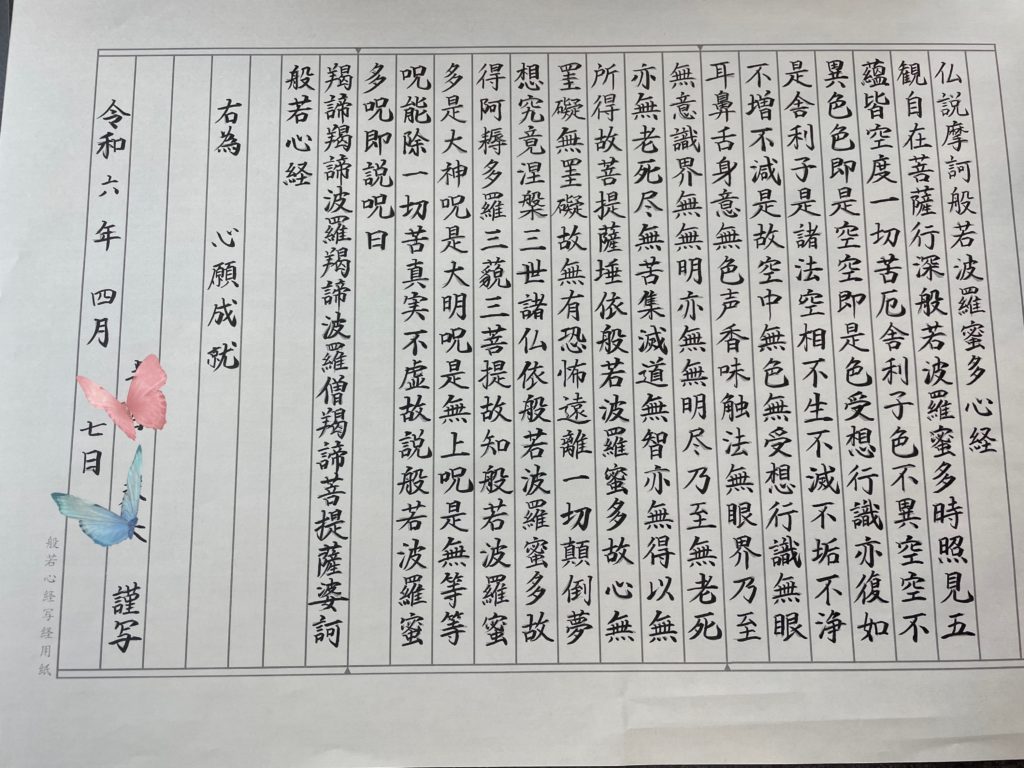 仏説摩訶般若波羅蜜多心経
観自在菩薩行深般若波羅蜜多時照見五
蘊皆空度一切苦厄舎利子色不異空空不
異色色即是空空即是色受想行識亦復如
是舎利子是諸法空相不生不滅不垢不浄
不増不減是故空中無色無受想行識無眼
耳鼻舌身意無色声香味触法無眼界乃至
無意識界無無明亦無無明尽乃至無老死
亦無老死尽無苦集滅道無智亦無得以無
所得故菩提薩埵依般若波羅蜜多故心無
罣礙無罣礙故無有恐怖遠離一切顛倒夢
想究竟涅槃三世諸仏依般若波羅蜜多故
得阿耨多羅三藐三菩提故知般若波羅蜜
多是大神呪是大明呪是無上呪是無等等
呪能除一切苦真実不虚故説般若波羅蜜
多呪即説呪曰
羯諦羯諦波羅羯諦波羅僧羯諦菩提薩婆訶
般若心経
右為 心願成就
令和六年 四月 七日
謹写
般若心経写経用紙